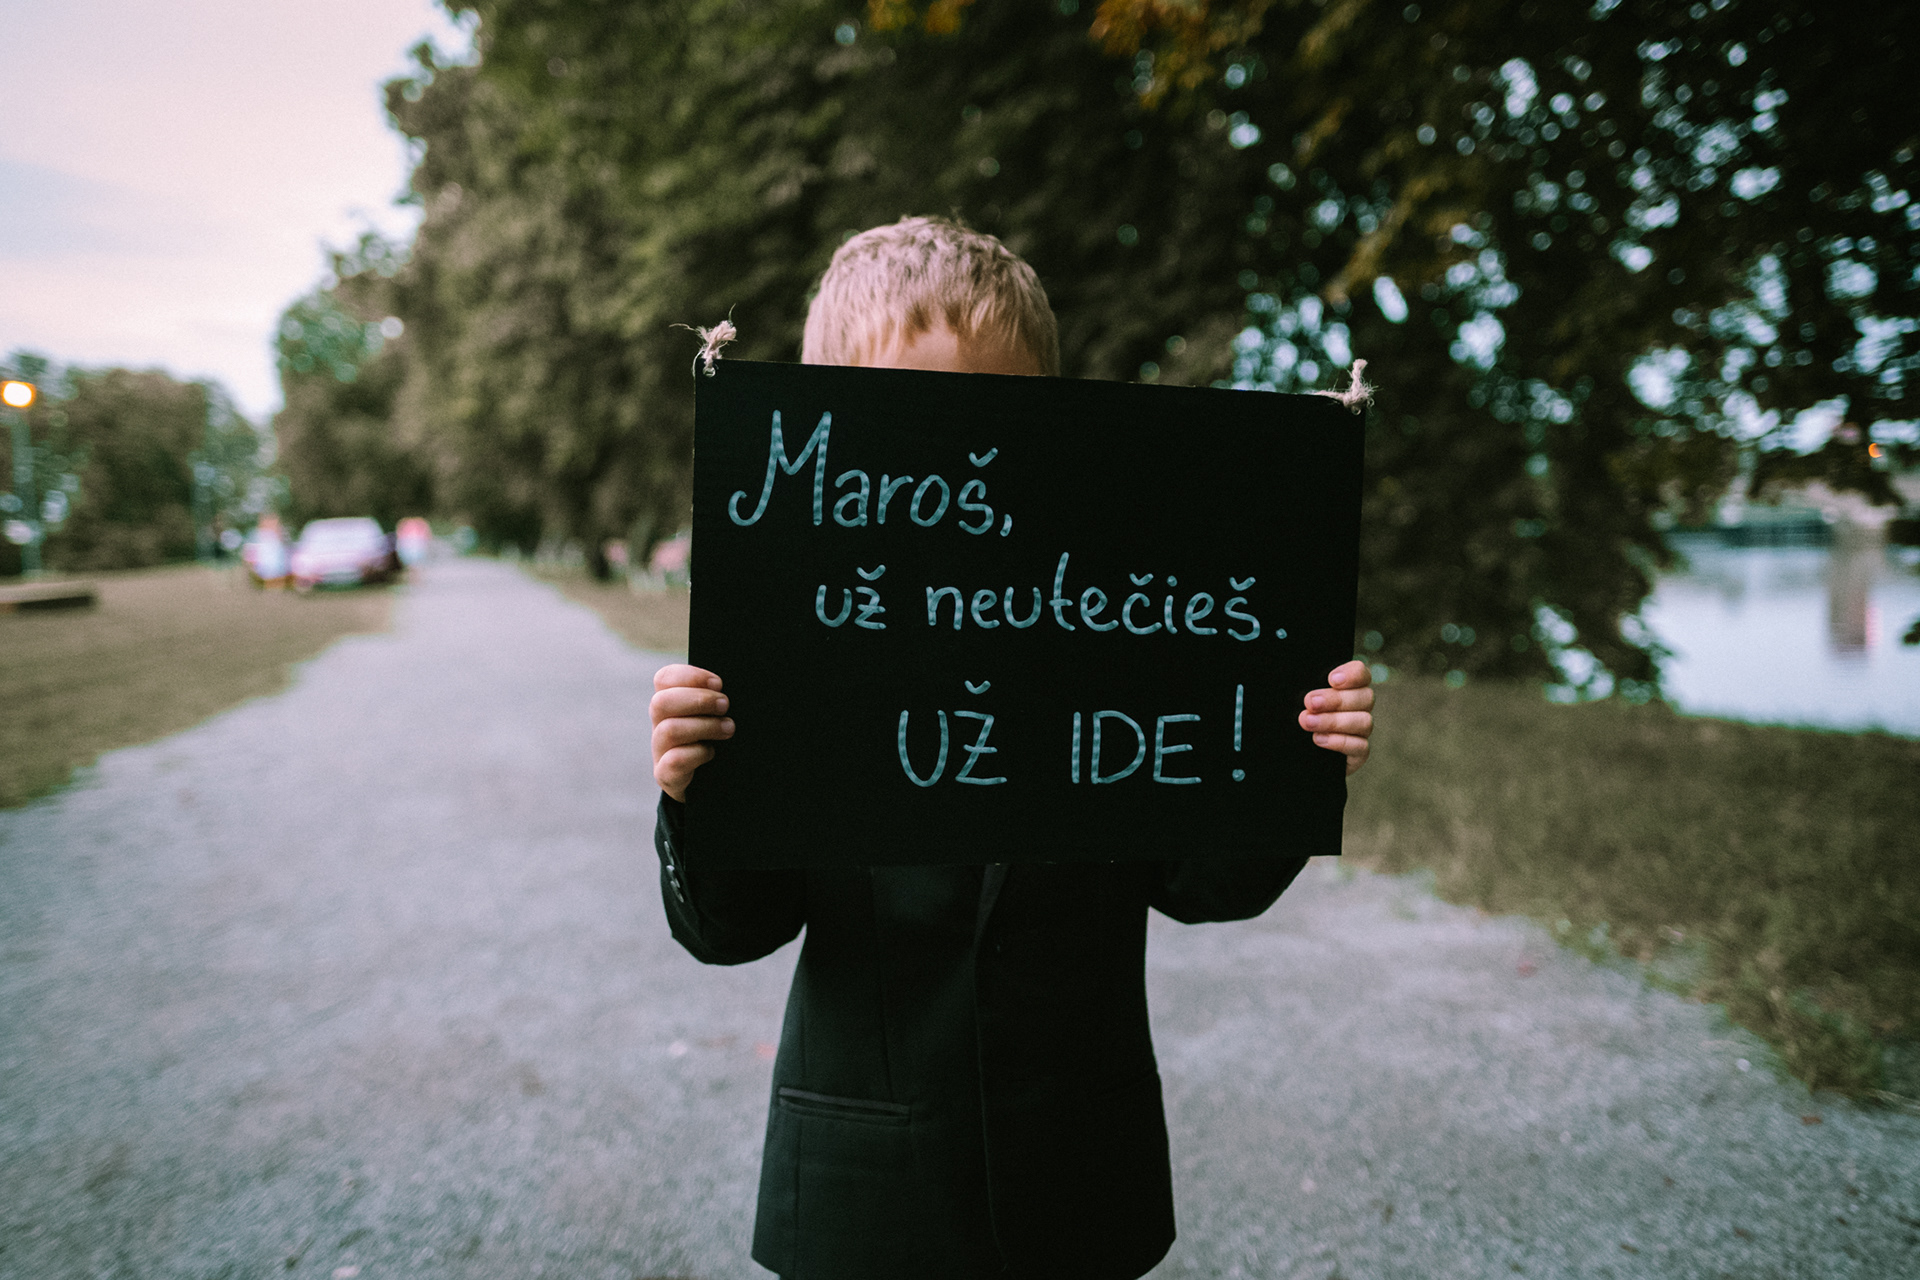 Maroš,
už neutečieš.
UŽ IDE!